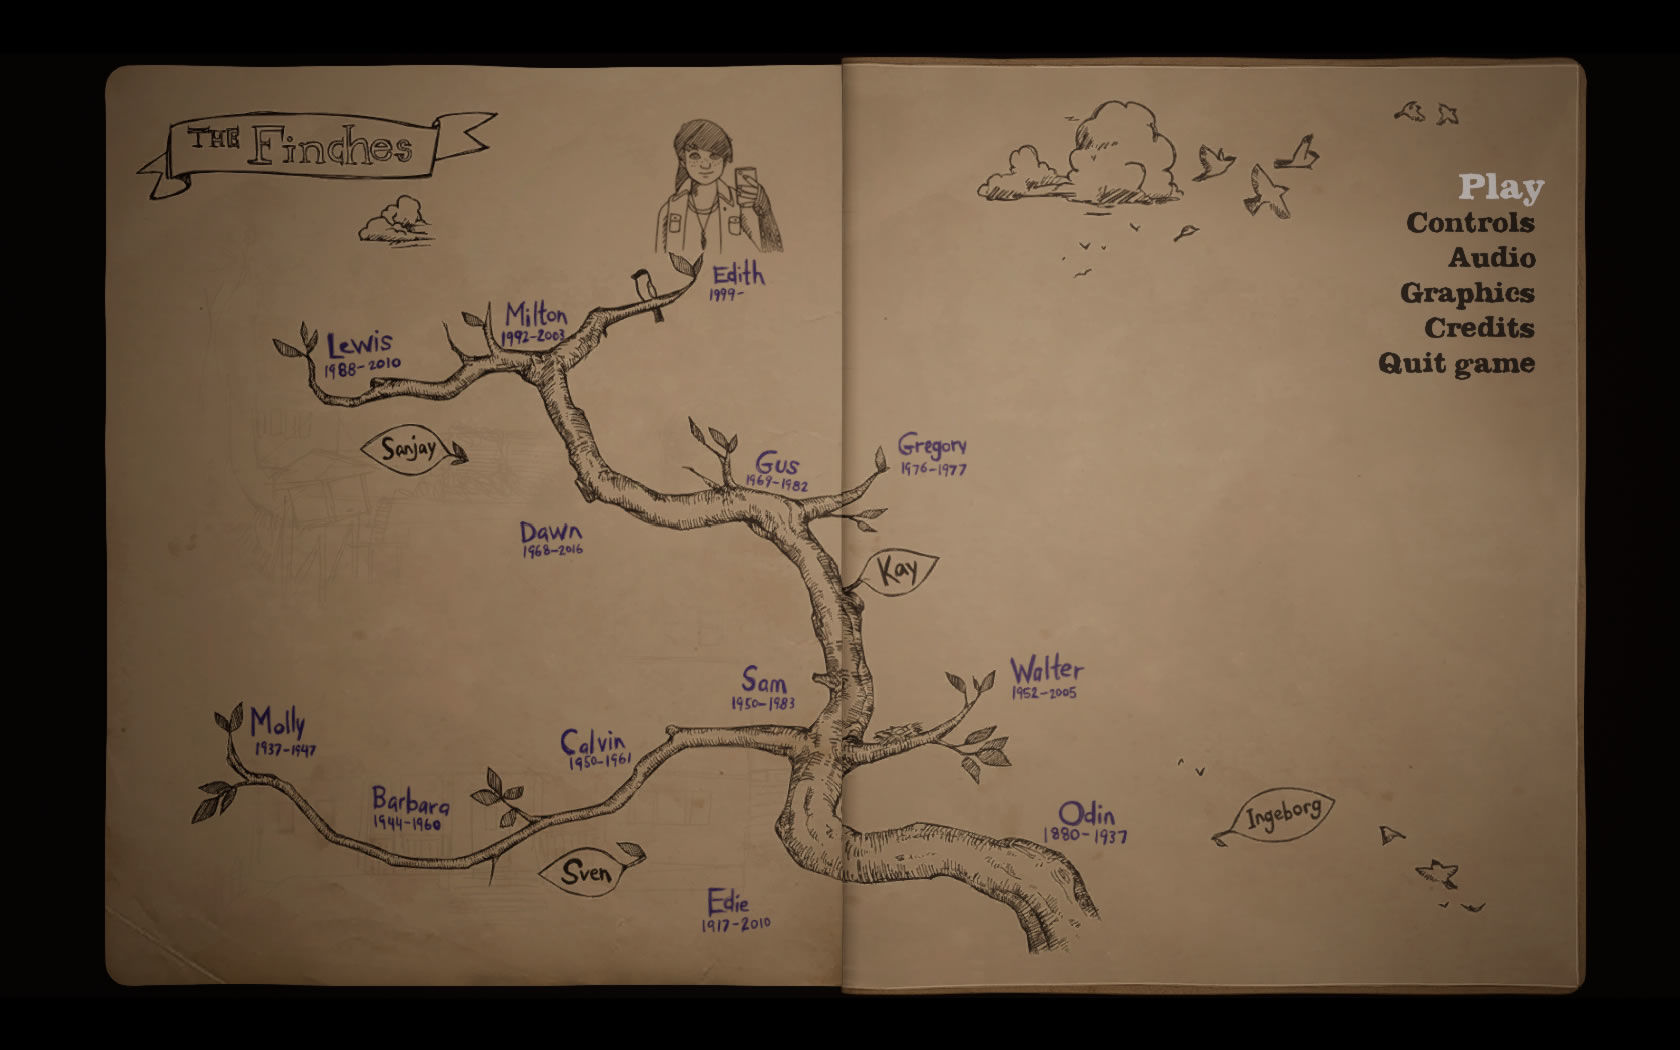 THE Finches
Edith
1999-
Milton
1992-2003
Lewis
1988-2010
Sanjay
Gus
1969-1982
Dawn
1968-2016
Sam
1950-1983
Molly
1937-1947
Calvin
1950-1961
Barbara
1944-1960
Sven
Edie
1917-2010
Gregory
1976-1977
Kay
Walter
1952-2005
Odin
1880-1937
Ingeborg
Play
Controls
Audio
Graphics
Credits
Quit game